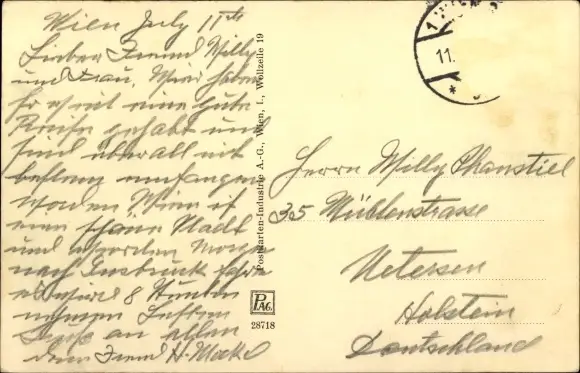 Wien July 11th
Lieber Freund Willy
und Frau. Wier haben
so weit eine gute
Reise gehabt und
sind überall mit
empfangen
worden Wien ist
eine schöne Stadt
und werden Morgen
nach Insbruck fahren
8 Stunden
nehmen
Gruß an allen
dein Freund H.
Postkarten-Industrie A.-G., Wien, I., Wollzeile 19
PAG.
28718
1 WIEN
11.
Herrn Willy Phanstiel
35 Mühlenstrasse
Uetersen
Holstein
Deutschland